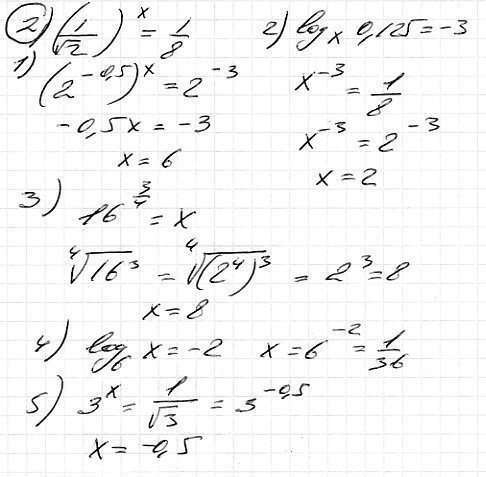 2) (1/√2)^x = 1/8
1) (2^{-0,5})^x = 2^{-3}
-0,5x = -3
x = 6
2) log_x 0,125 = -3
x^{-3} = 1/8
x^{-3} = 2^{-3}
x = 2
3) 16^{3/4} = x
⁴√16³ = ⁴√(2⁴)³ = 2³ = 8
x = 8
4) log_6 x = -2 x = 6^{-2} = 1/36
5) 3^x = 1/√3 = 3^{-0,5}
x = -0,5